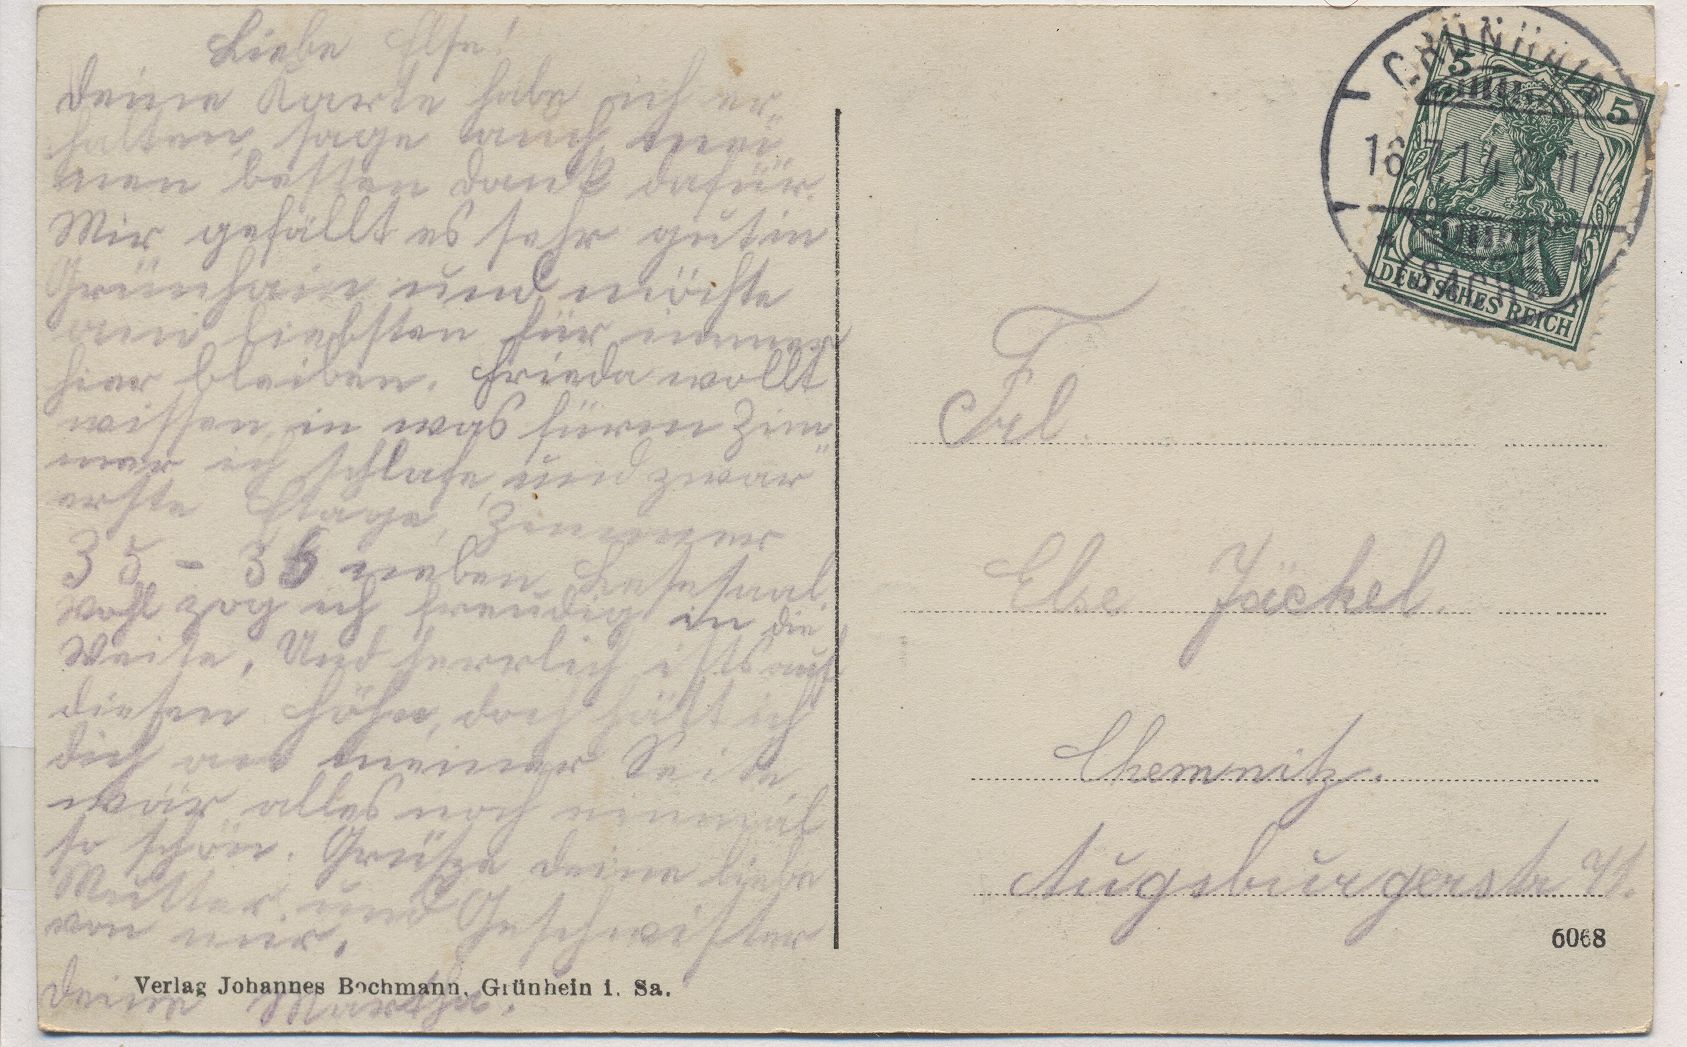 Liebe Else!
Deine Karte habe ich er-
halten, sage auch mei-
nen besten Dank dafür.
Mir gefällt es sehr gut in
Grünhain und möchte
am liebsten für immer
hier bleiben. Frieda wollt
wissen, in was für'n Zim-
mer ich schlafe, und zwar
erste Etage, Zimmer
35 - 36 neben Lesesaal.
Wohl zog ich freudig in die
Weite. Und herrlich ists auf
diesen Höhn, doch hätt ich
dich an meiner Seite,
wär alles noch einmal
so schön. Grüße deine liebe
Mutter und Geschwister
von mir.
Deine Martha.
Verlag Johannes Bochmann, Grünhein i. Sa.
GRÜNHAIN
16.7.14
(SACHSEN)
5 5
DEUTSCHES REICH
Frl.
Else Jäckel.
Chemnitz.
Augsburgerstr
6068